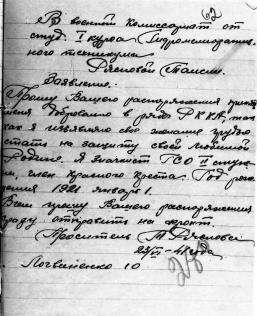 62
В военный комиссариат от
студ. I курса Гидромелиоратив-
ного техникума
Рясловой Таисии.
Заявление.
Прошу Вашего распоряжения принять
меня добровольно в ряды РККА, так
как я изъявляю свое желание грудью
стать на защиту своей любимой
Родины. Я значкист ГСО II ступе-
ни, член Красного креста. Год рож-
дения 1921 января 1.
Всем прошу Вашего распоряжения
сразу отправить на фронт.
Проситель Т.
23/VI-41 года